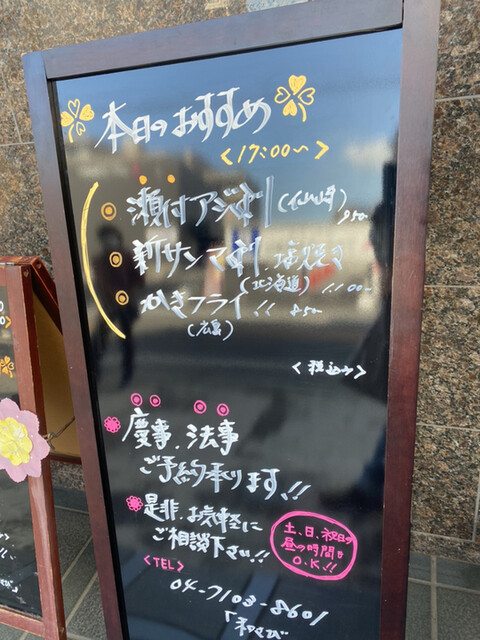 本日のおすすめ
<17:00〜>
瀬付アジ刺(仙崎) 950
新サンマ刺、塩焼き
(北海道) 1,100〜
かきフライ!! 850
(広島)
<税込>
慶事、法事
ご予約承ります!!
是非、お気軽に
ご相談下さい!!
土、日、祝日の
昼の時間も
O.K!!
<TEL>
04-7103-8601